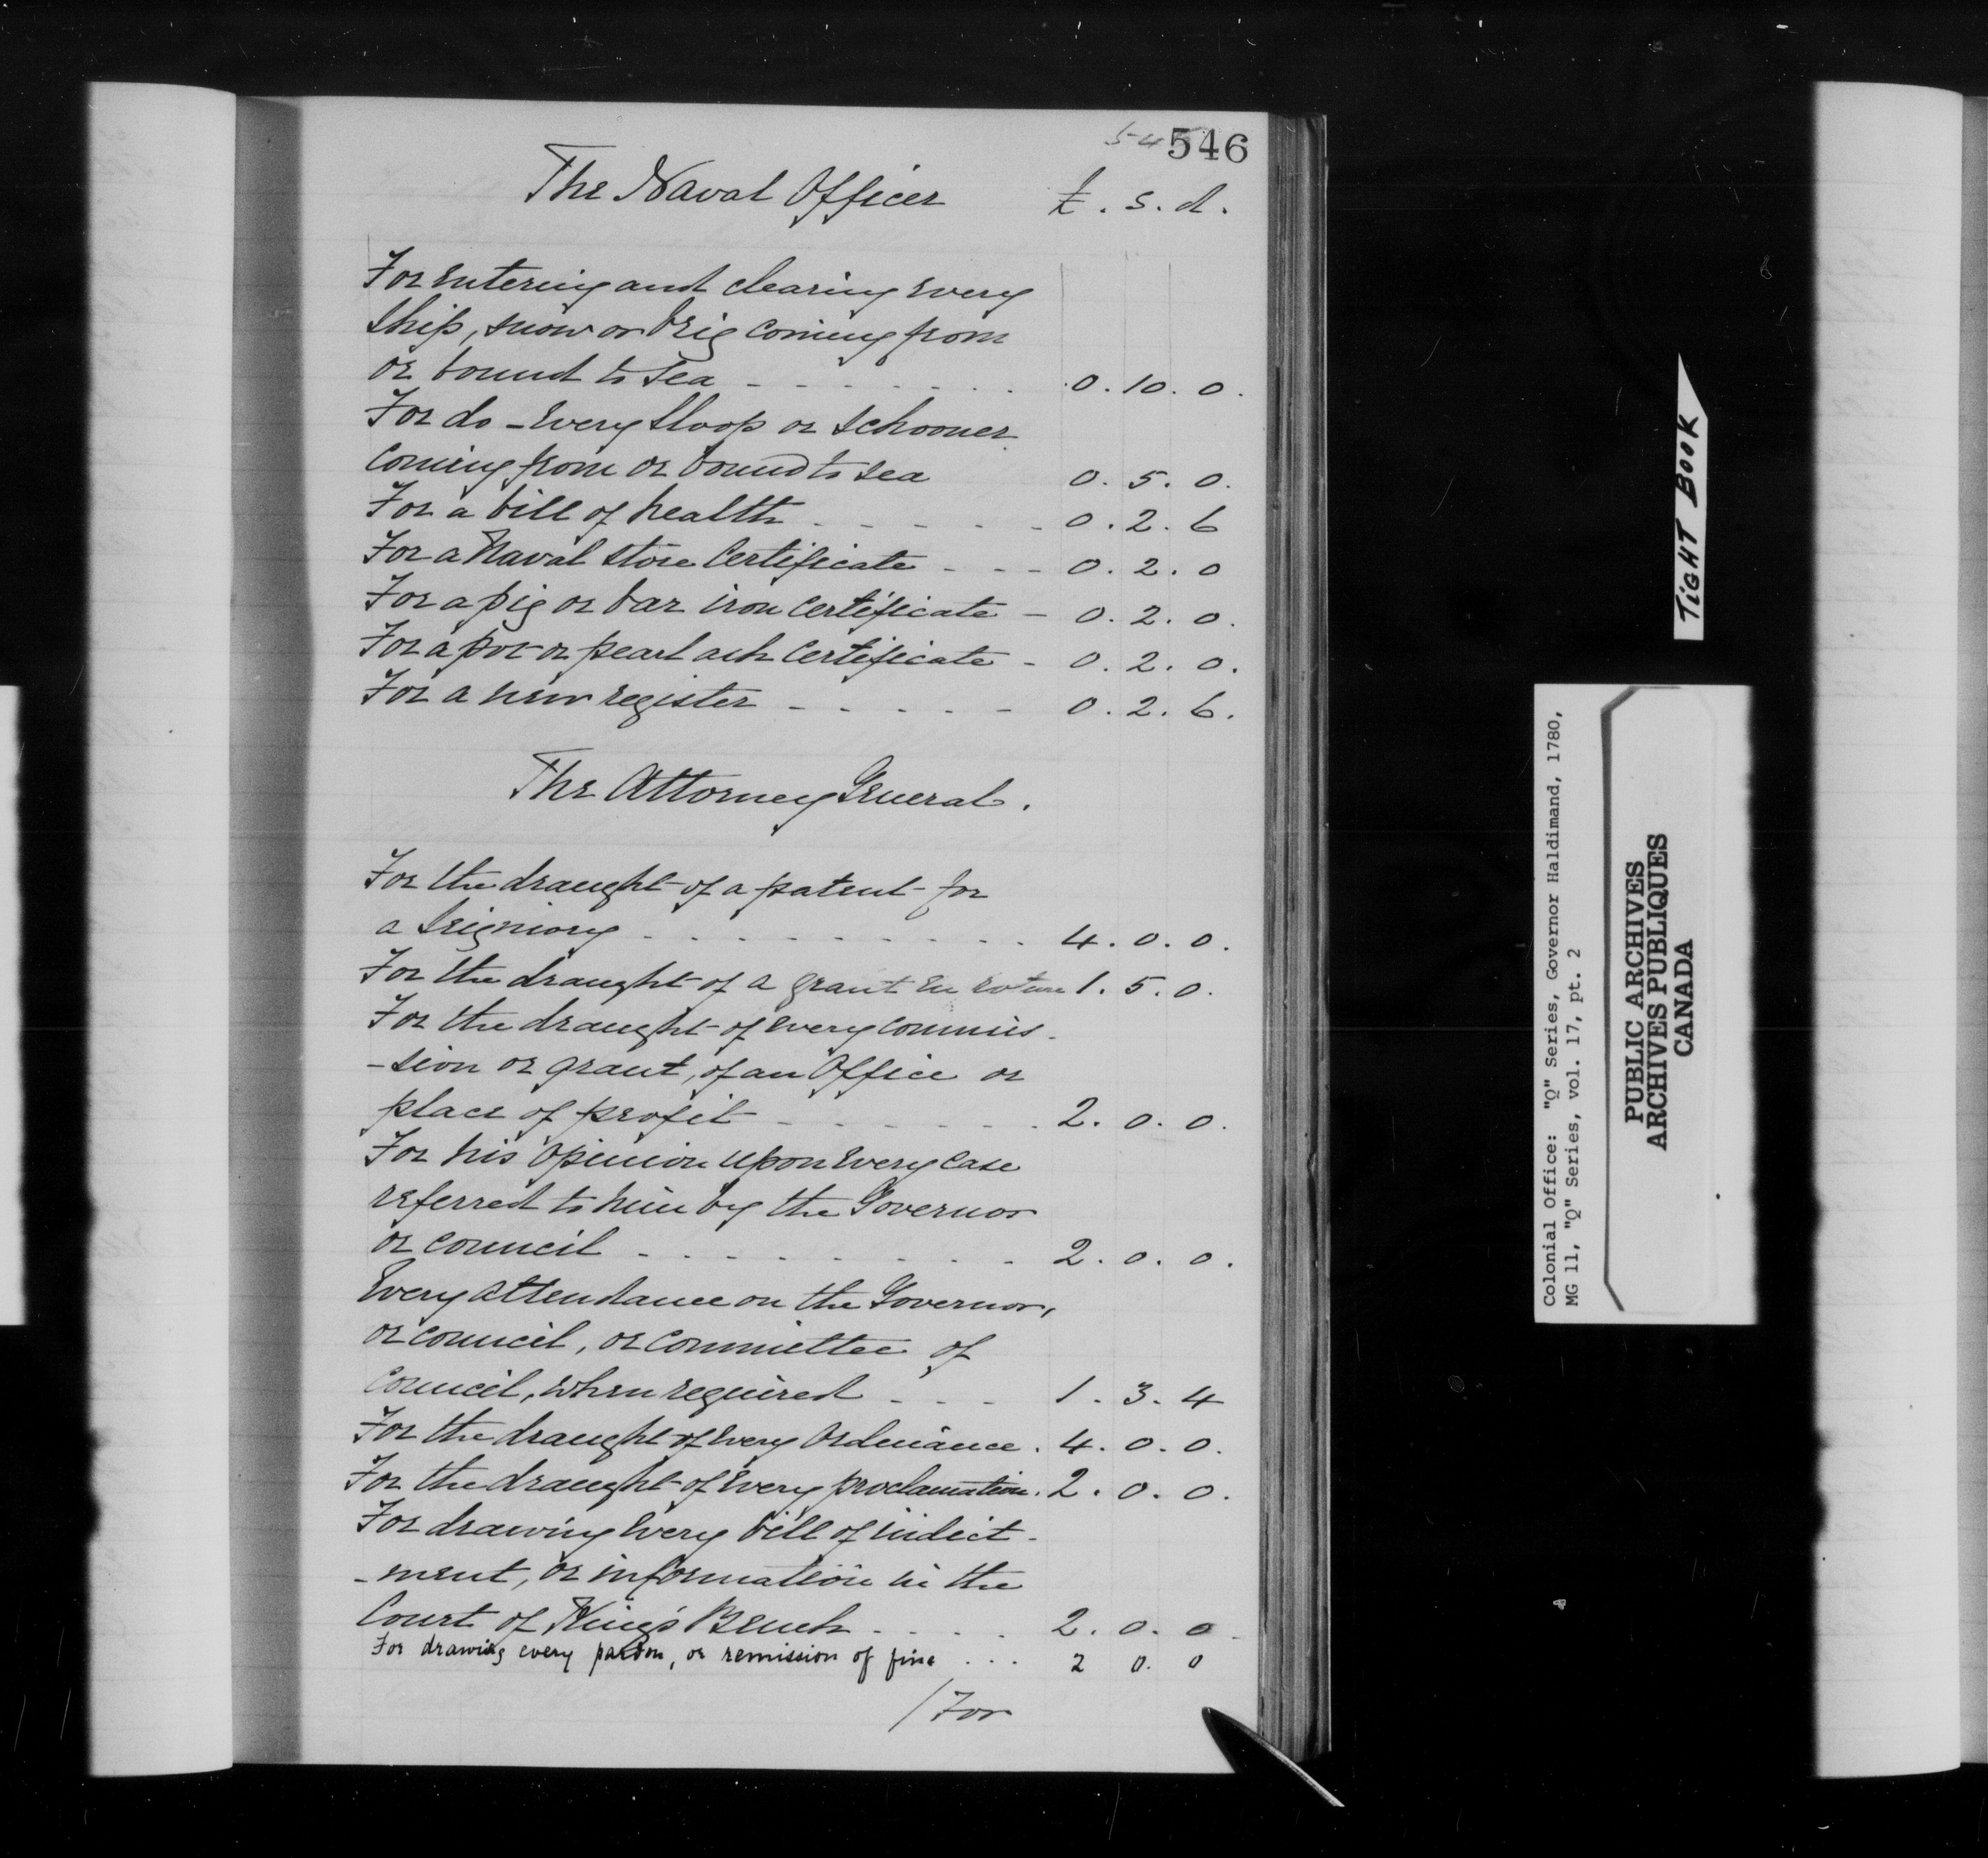 54 546
The Naval Officer £ . s. d.
For entering and clearing every
ship, snow or brig coming from
or bound to sea - - - - - - - 0. 10. 0.
For do - every sloop or schooner
coming from or bound to sea 0. 5. 0.
For a bill of health - - - - - - 0. 2. 6
For a Naval store certificate - - - 0. 2. 0
For a pig or bar iron certificate - 0. 2. 0.
For a pot or pearl ash certificate - 0. 2. 0.
For a new register - - - - - 0. 2. 6.
The Attorney General.
For the draught of a patent for
a Seigniory - - - - - - - - - 4. 0. 0.
For the draught of a grant en roture 1. 5. 0.
For the draught of every commis-
-sion or grant, of an Office or
place of profit - - - - - - - 2. 0. 0.
For his opinion upon every case
referred to him by the Governor
or council - - - - - - - - - 2. 0. 0.
Every attendance on the Governor,
or council, or committee of
council, when required - - - 1. 3. 4
For the draught of every Ordinance. 4. 0. 0.
For the draught of every proclamation. 2. 0. 0.
For drawing every bill of indict-
-ment, or information in the
Court of King's Bench - - - - 2. 0. 0.
For drawing every pardon, or remission of fine . . . 2 0. 0
/ For
TIGHT BOOK
Colonial Office: "Q" Series, Governor Haldimand, 1780,
MG 11, "Q" Series, vol. 17, pt. 2
PUBLIC ARCHIVES
ARCHIVES PUBLIQUES
CANADA